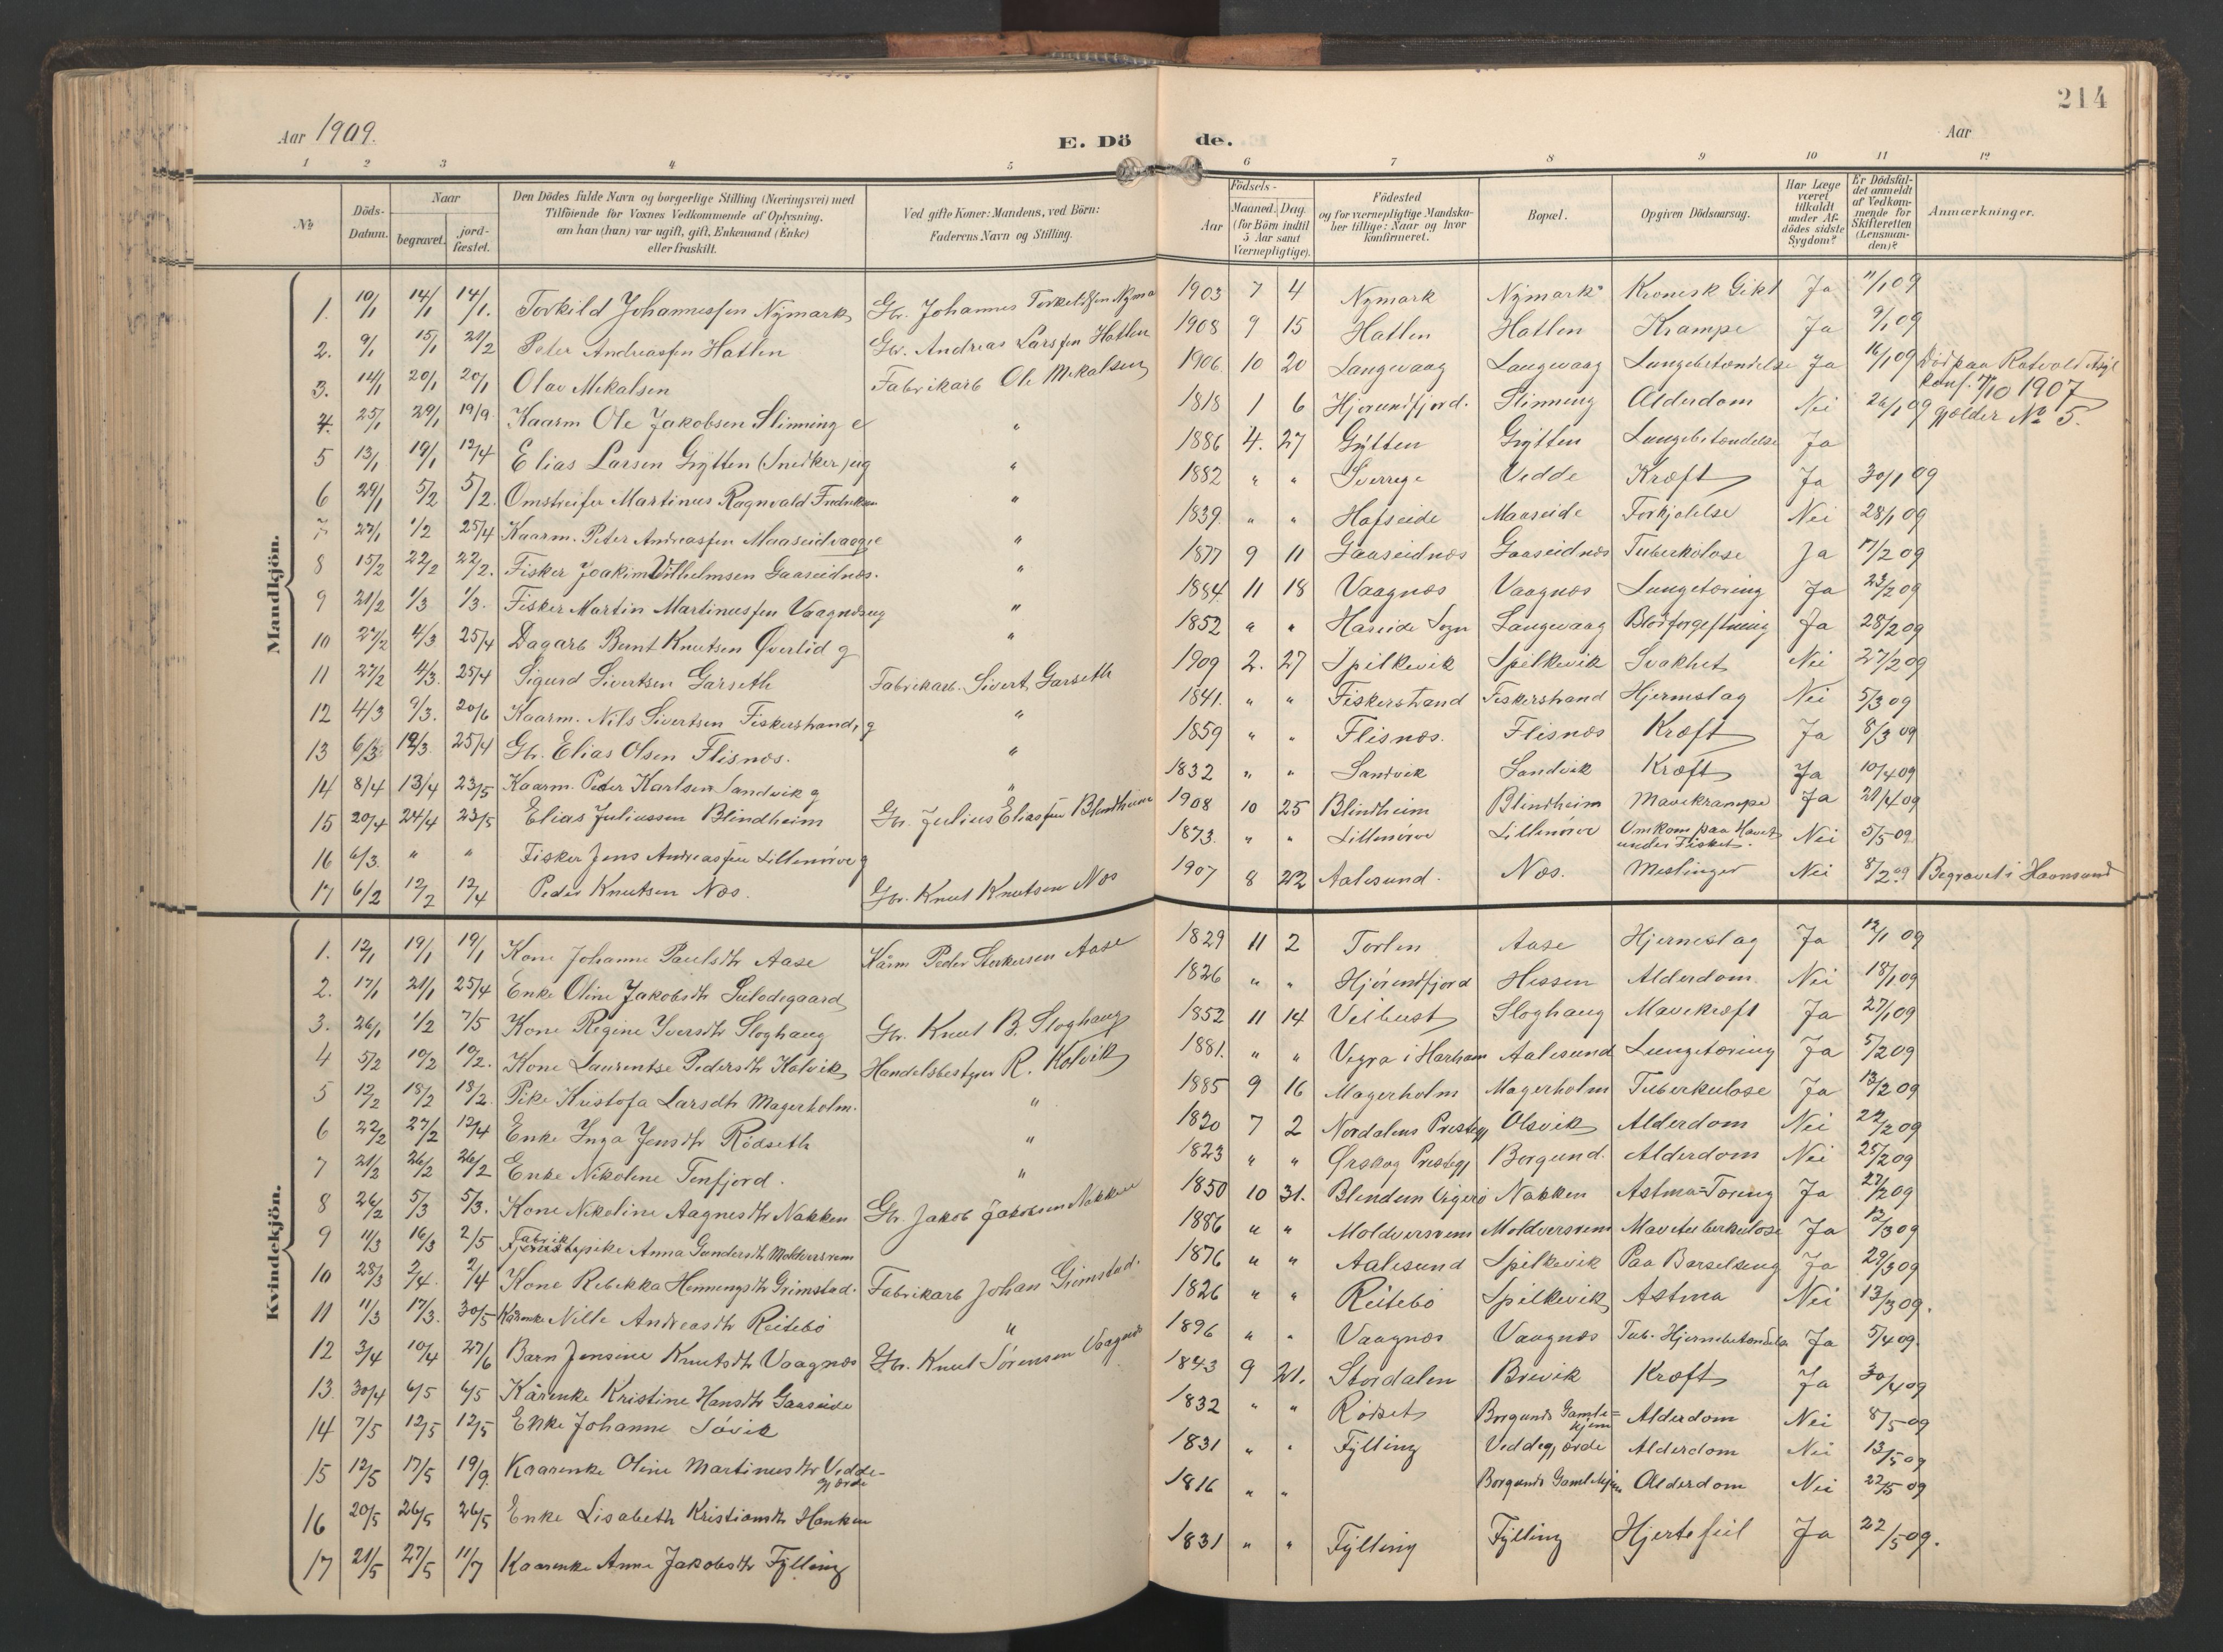 214
Aar 1909. E. Dö de. Aar
1 2 3 4 5 6 7 8 9 10 11 12
No
Döds-Datum.
Naar
begravet. jordfæstet.
Den Dödes fulde Navn og borgerlige Stilling (Næringsvei) med
Tilföiende for Voxnes Vedkommende af Oplysning,
om han (hun) var ugift, gift, Enkemand (Enke)
eller fraskilt.
Ved gifte Koner: Mandens, ved Börn:
Faderens Navn og Stilling.
Födsels-
Aar
Maaned. Dag.
(for Börn indtil
5 Aar samt
Værnepligtige).
Födested
og for værnepligtige Mandskaber tillige: Naar og hvor
konfirmeret.
Bopæl.
Opgiven Dödsaarsag.
Har Læge
været
tilkaldt
under Afdödes sidste
Sygdom?
Er Dödsfaldet anmeldt
af Vedkommende for
Skifteretten
(Lensmanden)?
Anmærkninger.
Mandkjön.
1. 10/1 14/1 14/1. Torkild Johannessen Nymark Gbr. Johannes Torkeldsen Nyma 1903 7 4 Nymark Nymark Kronisk Gikt Ja 11/1 09
2. 9/1 15/1 21/2 Peter Andreassen Hatlen Gbr. Andreas Larssen Hatlen 1908 9 15 Hatlen Hatlen Krampe Ja 9/1 09
3. 14/1 20/1 20/1 Olav Mekalsen Fabrikarb Ole Mekalsen 1906. 10 20 Langevaag Langevaag Lungebetændelse Ja 16/1 09 Död paa Rotvold Asyl
4. 25/1 29/1 19/9. Kaarm Ole Jakobsen Slinning e " 1818 1 6 Hjørundfjord. Slinning Alderdom Nei 26/1 09 Konf. 7/10 1907
gjælder No 5.
5 13/1 19/1 12/4 Elias Larsen Grytten (Snedker) ug " 1886 4. 27 Grytten Grytten Lungebetændelse Ja
6 29/1 5/2 5/2. Omstreifer Martinus Ragnvald Fredriksen " 1882 " " Sverrige Vedde Kræft Ja 30/1 09
7 27/1 1/2 25/4 Kaarm. Peter Andreassen Maaseidvaag e " 1839. " " Hafseide Maaseide Forkjølelse Nei 28/1 09
8 15/2 22/2 22/2. Fisker Joakim Vilhelmsen Gaaseidnæs. " 1877 9 11 Gaaseidnæs Gaaseidnæs Tuberkolose Ja 17/2 09
9 21/2 1/3 1/3. Fisker Martin Martinussen Vaagnæs ug " 1884. 11 18 Vaagnæs Vaagnæs Lungetæring Ja 23/2 09
10 27/2 4/3 25/4 Dagarb Bernt Knutsen Øverlid g " 1852 " " Hareide Sogn Langevaag Blodforgiftning Ja 28/2 09
11 27/2 4/3. 25/4 Sigurd Sivertsen Garseth Fabrikarb. Sivert Garseth 1909 2. 27 Spilkevik Spilkevik Svakhet Nei 27/2 09
12 4/3 9/3. 20/6 Kaarm. Nils Sivertsen Fiskerstrand, g " 1841. " " Fiskerstrand Fiskerstrand Hjerneslag Nei 5/3 09
13 6/3 12/3. 25/4 Gbr. Elias Olsen Flisnæs. " 1859 " " Flisnæs. Flisnæs Kræft Ja 8/3 09
14 8/4 13/4 23/5 Kaarm. Peder Karlsen Sandvik g " 1832 " " Sandvik Sandvik Kræft Ja 10/4 09
15 20/4 24/4 23/5 Elias Juliussen Blindheim Gbr. Julius Eliassen Blindheim 1908 10 25 Blindheim Blindheim Mavekrampe Ja 21/4 09
16 6/3. " " Fisker Jens Andreassen Lillenörve g 1873. " " Lillenörve Lillenörve Omkom paa Havet
under Fisket. Nei 5/5 09.
17 6/2 12/2 12/4 Peder Knutsen Næs. Gbr. Knut Knutsen Næs 1907 8 22 Aalesund. Næs. Meslinger Nei 8/2 09 Begravet i Haansund
Kvindekjön.
1. 12/1 19/1 19/1 Kone Johanne Paulsdtr Aase Kårm Peder Storkersen Aase 1829 11 2 Torlen Aase Hjerneslag Ja 12/1 09
2. 17/1 21/1 25/4 Enke Oline Jakobsdtr Sulodegaard 1826 " " Hjörundfjord Hessen Alderdom. Nei 18/1 09
3. 26/1 1/2 7/5 Kone Regine Iversdtr Sloghaug Gbr. Knut B. Sloghaug 1852 11 14 Veibust Sloghaug Mavekræft Ja 27/1 09
4 5/2 10/2 10/2. Kone Laurentse Pedersdtr Kolvik Handelsbestyrer R. Kolvik 1881. " " Vegra i Harham Aalesund Lungetæring Ja 5/2 09
5 12/2 18/2 18/2. Pike Kustofa Larsdtr Magerholm. " 1885 9 16 Magerholm Magerholm Tuberkulose Ja 13/2 09
6 22/2 27/2 12/4 Enke Inga Jensdtr Rödseth " 1820 7 2 Nordalens Prestegj Olsvik Alderdom Nei 22/2 09
7 21/2 26/2 26/2 Enke Nikoline Tenfjord. " 1823 " " Ørskog Prestegj Borgund. Alderdom Nei 25/2 09
8 26/2 5/3 5/3. Kone Nikoline Aagnesdtr Nakken Gbr. Jakob Jakobsen Nakken 1850 10 31. Blendem Vigerö Nakken Astma=Tæring Ja 27/2 09
9 11/3 16/3 2/5 Fabrik
pike Anna Gundersdtr Moldversrem 1886 " " Moldversrem Moldversrem Mavetuberkulose Ja 13/3 09
10 28/3 2/4. 2/4 Kone Rebekka Henningsdtr Grimstad. Fabrikarb Johan Grimstad. 1876 " " Aalesund Spilkevik Paa Barselseng Ja 29/3 09
11 11/3 17/3. 30/5 Kårenke Nille Andreasdtr Reitebö " 1826 " " Reitebö Spilkevik Astma Nei 13/3 09.
12 3/4 10/4 27/6 Barn Jensine Knutsdtr Vaagnæs Gbr. Knut Sörensen Vaagnæs 1896 " " Vaagnæs Vaagnæs Tub. Hjernebetændelse Ja 5/4 09.
13. 30/4 6/5 6/5 Kårenke Kristine Hansdtr Gaaseide 1843 9 21. Stordalen Brevik Kræft Ja 30/4 09
14 7/5 12/5 12/5 Enke Johanne Sövik 1832 " " Rödset Borgunds Gamle=
hjem Alderdom Nei 8/5 09
15 12/5 17/5 19/9. Kaarenke Oline Martinusdtr Vedde-
gjærde 1831 " " Fylling Veddegjærde Alderdom Nei 13/5 09
16 20/5 26/5 26/5 Enke Lisabeth Kristiansdtr Hanken 1816 " " Borgunds Gamlehjem Alderdom Nei 22/5 09
17 21/5 27/5 11/7 Kaarenke Anne Jakobsdtr Fylling 1831 " " Fylling Fylling Hjertefeil Ja 22/5 09.